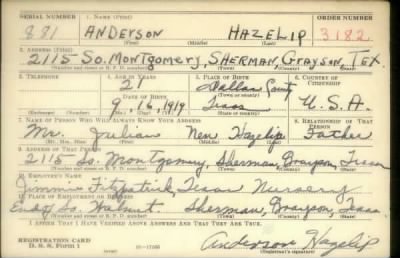 SERIAL NUMBER 1. NAME (Print) ORDER NUMBER
881 ANDERSON HAZELIP 3182
(First) (Middle) (Last)
2. ADDRESS (Print)
2115 So. Montgomery, SHERMAN, GRAYSON, TEX.
(Number and street or R. F. D. number) (Town) (County) (State)
3. TELEPHONE 4. AGE IN YEARS 5. PLACE OF BIRTH 6. COUNTRY OF CITIZENSHIP
21 Dallas County
DATE OF BIRTH
9, 16, 1919 Texas U.S.A.
(Mo.) (Day) (Yr.) (State or country)
7. NAME OF PERSON WHO WILL ALWAYS KNOW YOUR ADDRESS 8. RELATIONSHIP OF THAT PERSON
Mr. Julian New Hazelip Father
(Mr., Mrs., Miss) (First) (Middle) (Last)
9. ADDRESS OF THAT PERSON
2115 So. Montgomery, Sherman, Grayson, Texas
(Number and street or R. F. D. number) (Town) (County) (State)
10. EMPLOYER'S NAME
Jimmie Fitzpatrick, Texas Nursery
11. PLACE OF EMPLOYMENT OR BUSINESS
End of So. Walnut. Sherman, Grayson, Texas
(Number and street or R. F. D. number) (Town) (County) (State)
I AFFIRM THAT I HAVE VERIFIED ABOVE ANSWERS AND THAT THEY ARE TRUE.
REGISTRATION CARD
D. S. S. FORM 1
Anderson Hazelip
(Registrant's signature)